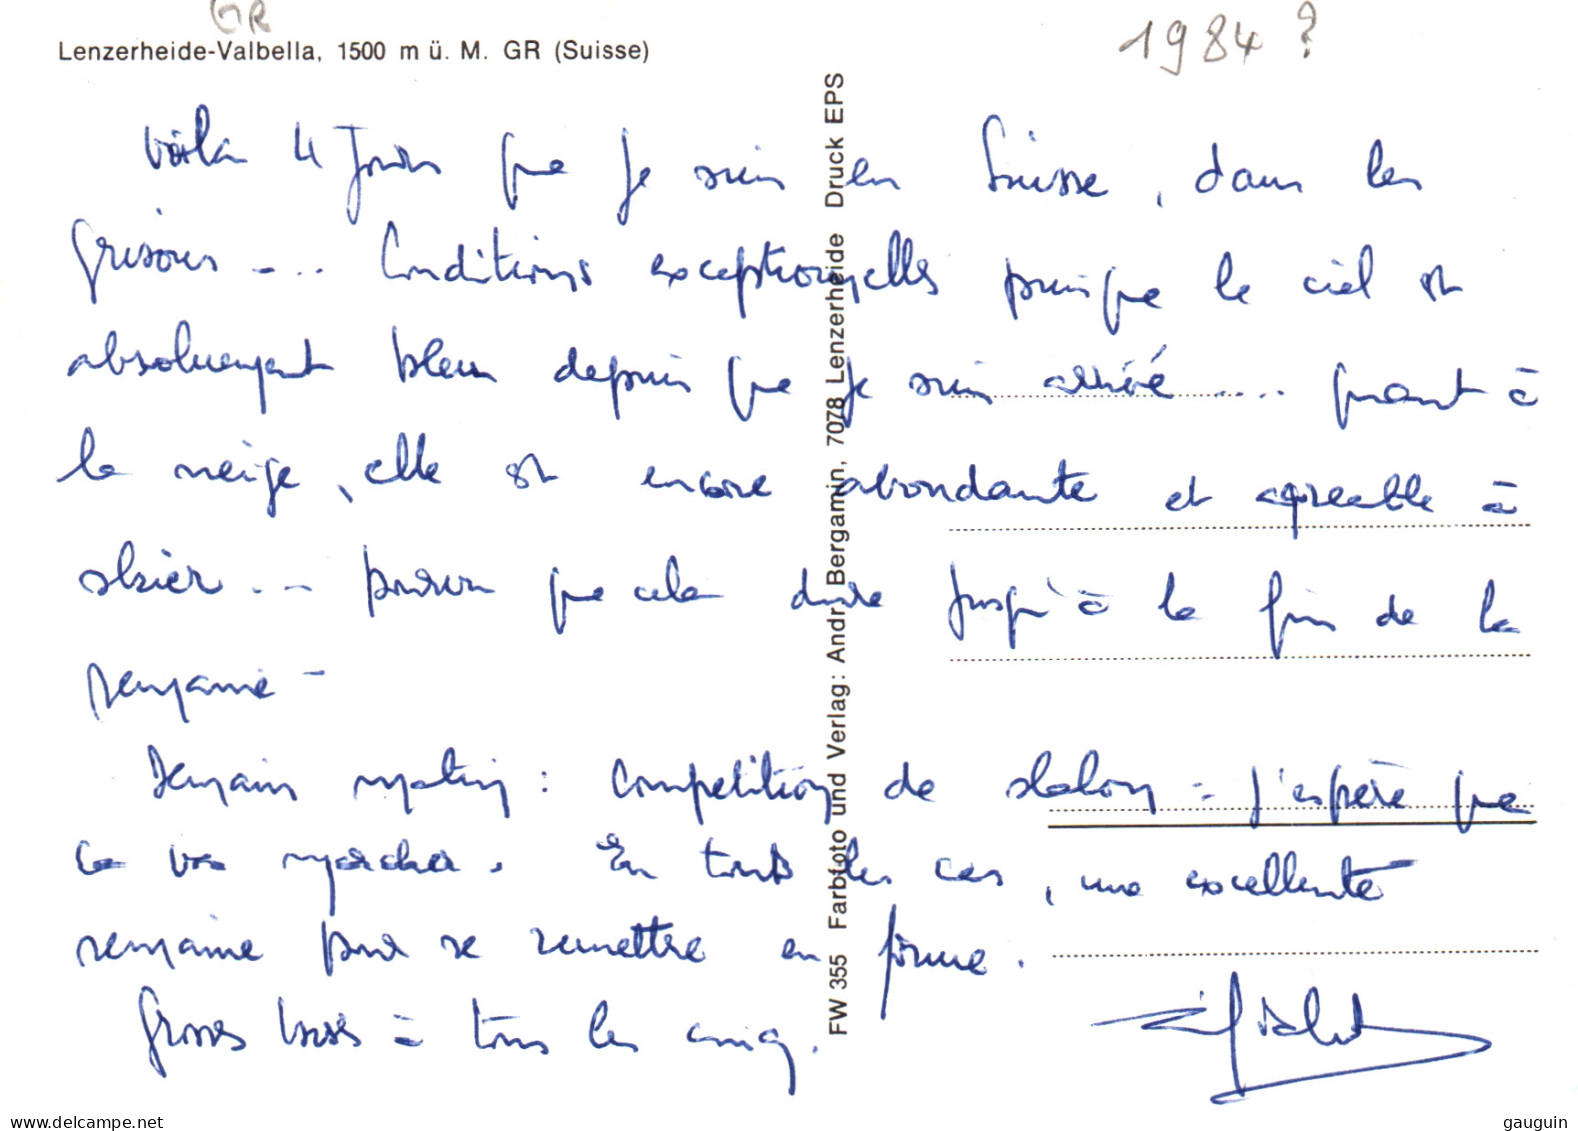 GR
Lenzerheide-Valbella, 1500 m ü. M. GR (Suisse)
1984 ?
Voilà 4 Jours que je suis en Suisse, dans les
Grisons -... Conditions exceptionnelles puisque le ciel est
absolument bleu depuis que je suis arrivé .... quant à
la neige, elle est encore abondante et agréable à
skier ... pourvu que cela dure jusqu'à la fin de la
semaine -
Demain matin : compétition de slalom - j'espère que
ça va marcher. En tous les cas, une excellente
semaine pour se remettre en forme.
Grosses bises à tous les cinq.
FW 355 Farbfoto und Verlag: Andr. Bergamin, 7078 Lenzerheide Druck EPS
www.delcampe.net
gauguin